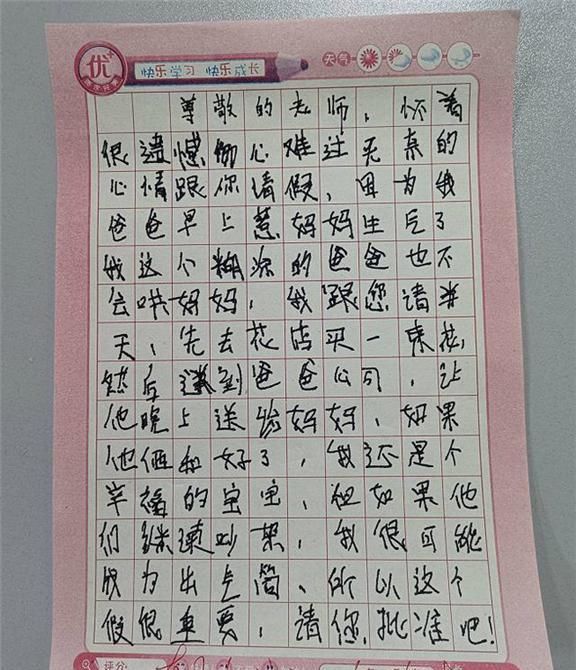 优
快乐学习 快乐成长
天气
尊敬的老师，怀着
很遗憾伤心难过无奈的
心情跟你请假，因为我
爸爸早上惹妈妈生气了
我这个糊涂的爸爸也不
会哄妈妈，我跟您请半
天，先去花店买一束花，
然后送到爸爸公司，让
他晚上送给妈妈，如果
他俩和好了，我还是个
幸福的宝宝，但如果他
们继续吵架，我很可能
成为出气筒，所以这个
假很重要，请你批准吧！
评分